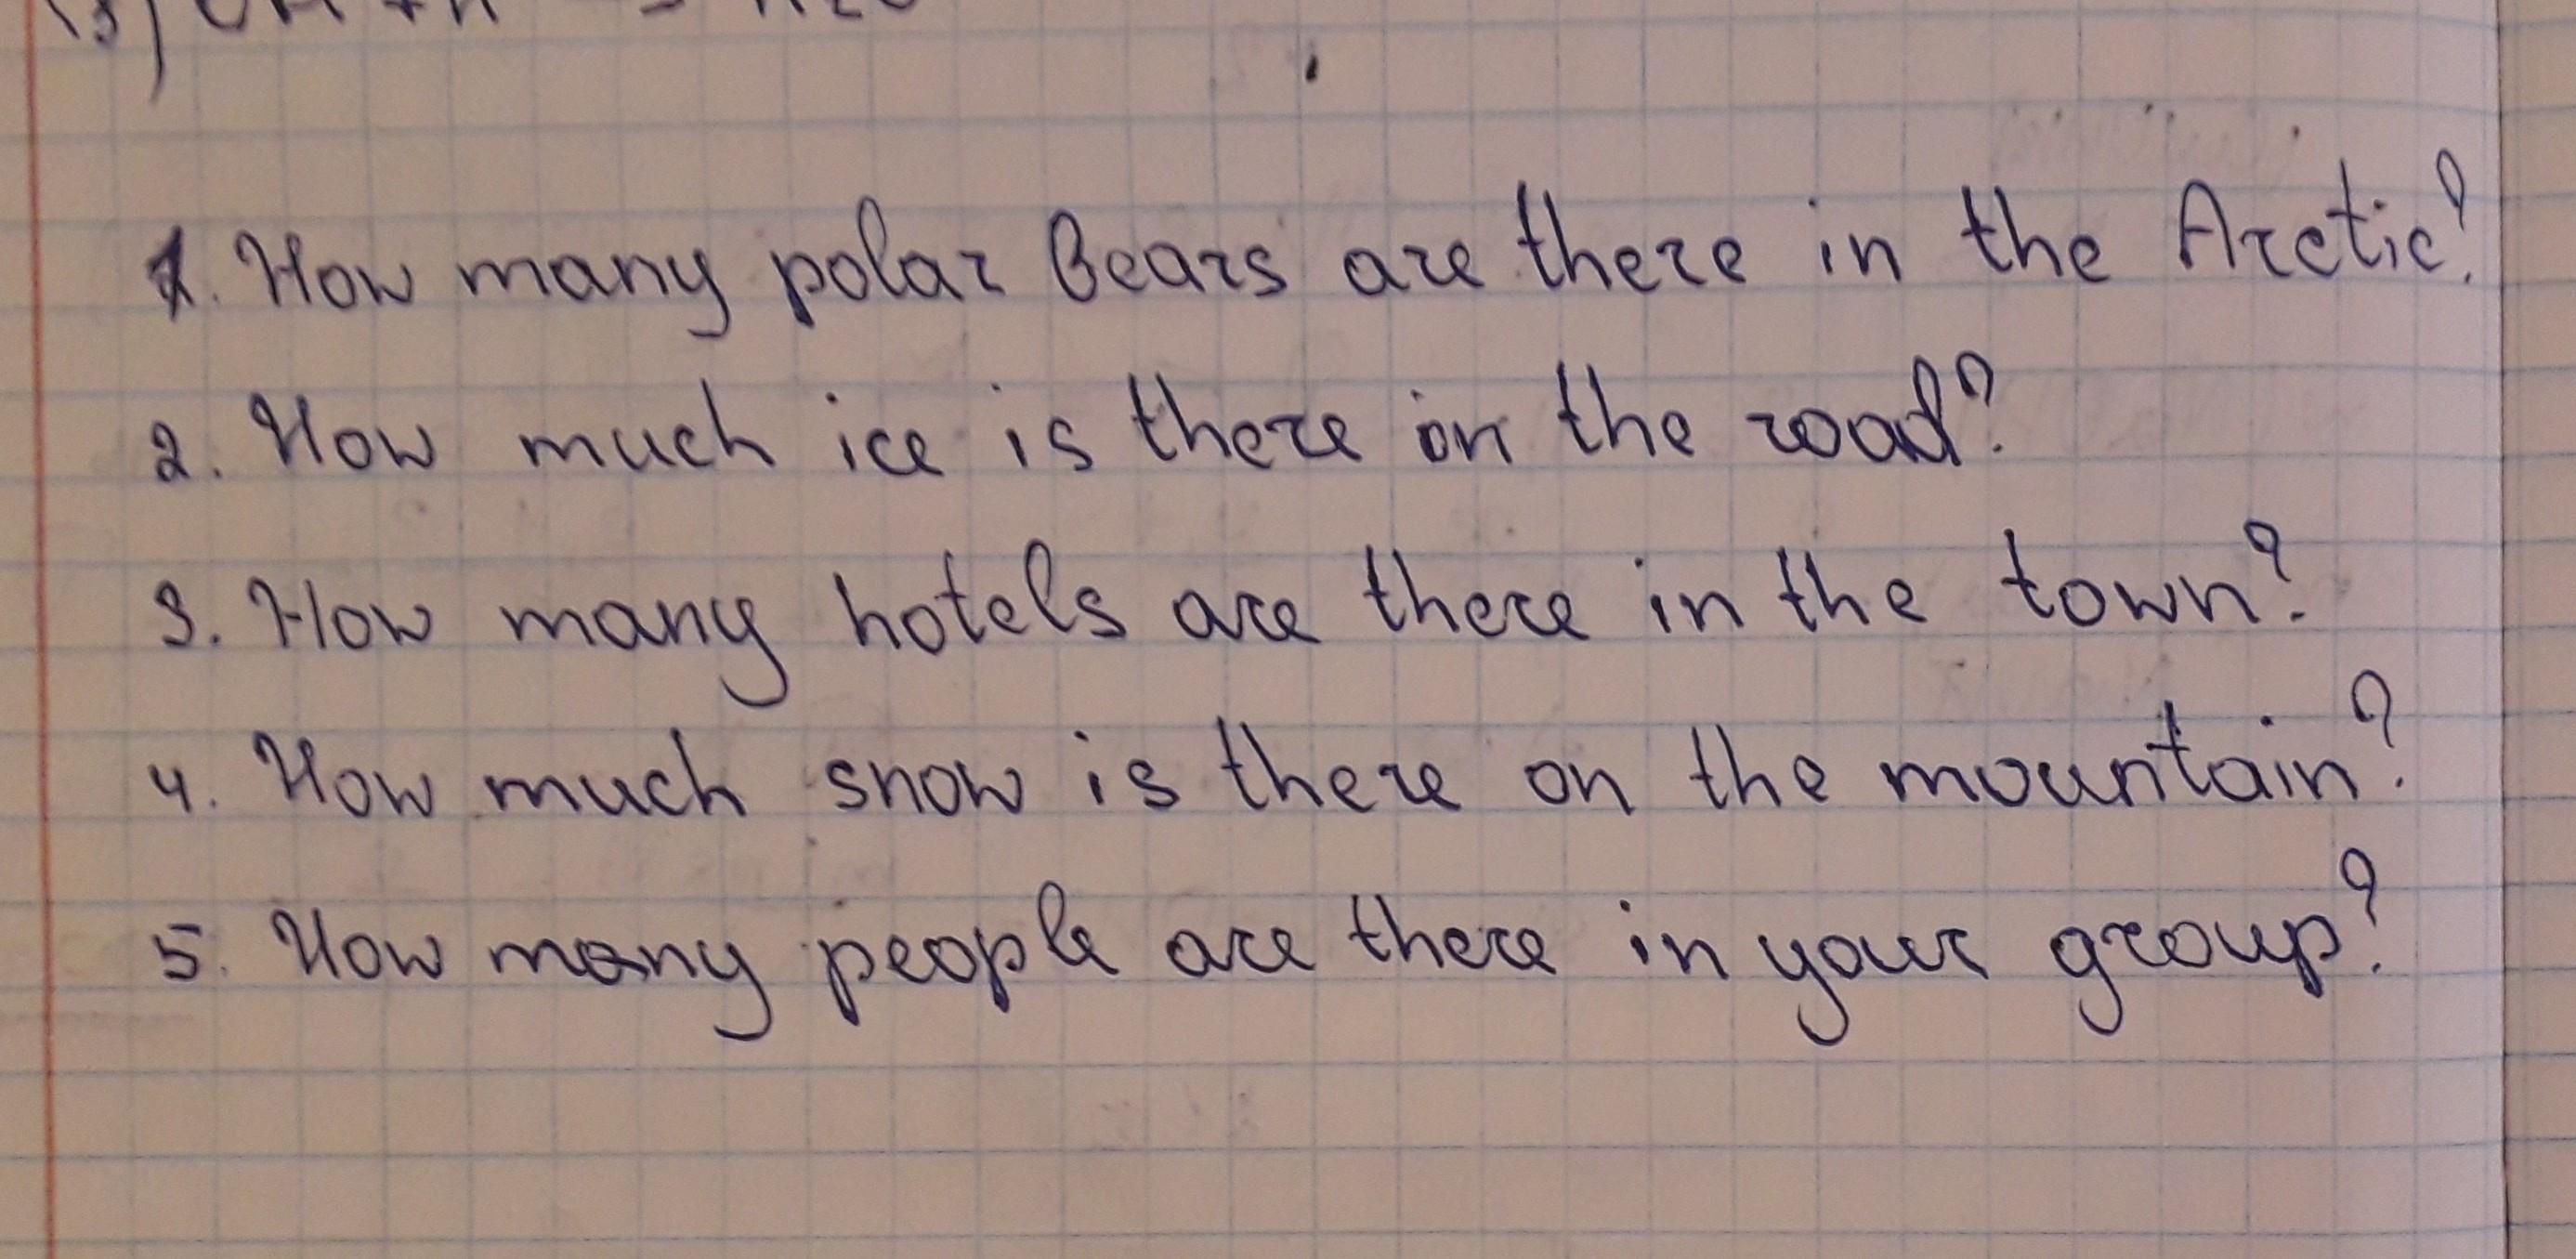 1. How many polar bears are there in the Arctic?
2. How much ice is there on the road?
3. How many hotels are there in the town?
4. How much snow is there on the mountain?
5. How many people are there in your group?